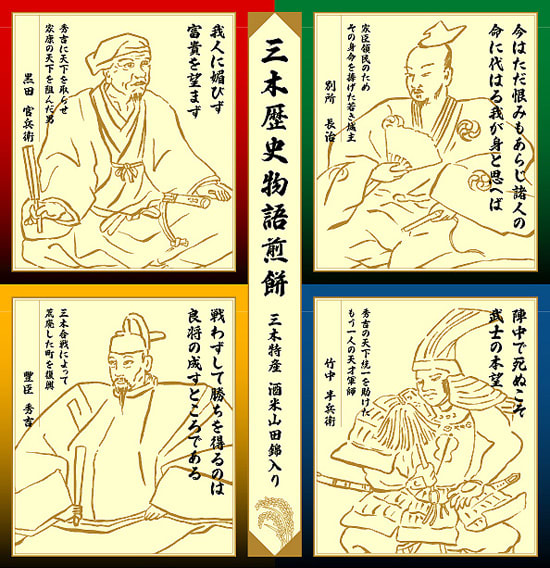 三木歴史物語煎餅
三木特産 酒米山田錦入り
今はただ恨みもあらじ諸人の
命に代はる我が身と思へば
家臣領民のため
その身命を捧げた若き城主
別所 長治
我人に媚びず
富貴を望まず
秀吉に天下を取らせ
家康の天下を阻んだ男
黒田 官兵衛
陣中で死ぬこそ
武士の本望
秀吉の天下統一を助けた
もう一人の天才軍師
竹中 半兵衛
戦わずして勝ちを得るのは
良将の成すところである
三木合戦によって
荒廃した町を復興
豊臣 秀吉